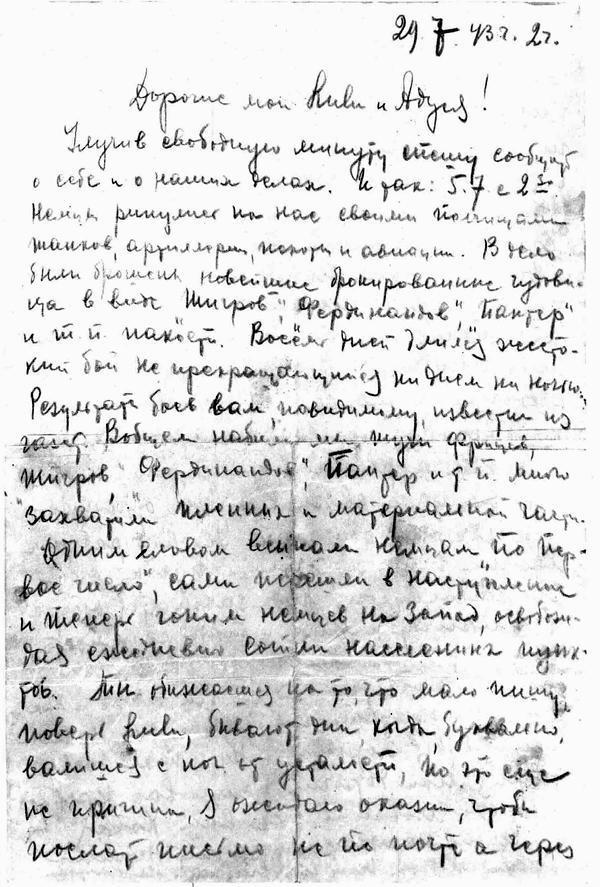 29 7. 43 г. 2 ч.
Дорогие мои Киви и Адуся!
Улучив свободную минуту спешу сообщить
о себе и о наших делах. И так: 5.7 с 2
Немцы ринулись на нас своими полчищами
танков, артиллерии, пехоты и авиации. В дело
были брошены новейшие бронированные чудови-
ща в виде "Тигров", "Фердинандов", "Пантер"
и т. п. пакости. Восемь дней длился жесто-
кий бой не прекращающийся ни днем ни ночью.
Результаты боев вам, повидимому, известны из
газет. Вобщем набили мы тьму фрицев,
"Тигров", "Фердинандов", "Пантер" и т. п. много
захватили пленных и материальной части.
Одним словом всыпали немцам "по пер-
вое число", сами перешли в наступление
и теперь гоним немцев на Запад, освобож-
дая ежедневно сотни населенных пунк-
тов. Ты обижаешься на то, что мало пишу
поверь Киви, бывают дни, когда, буквально,
валишься с ног от усталости, но это еще
не причина, я ожидаю оказии, чтобы
послать письмо не по почте а через